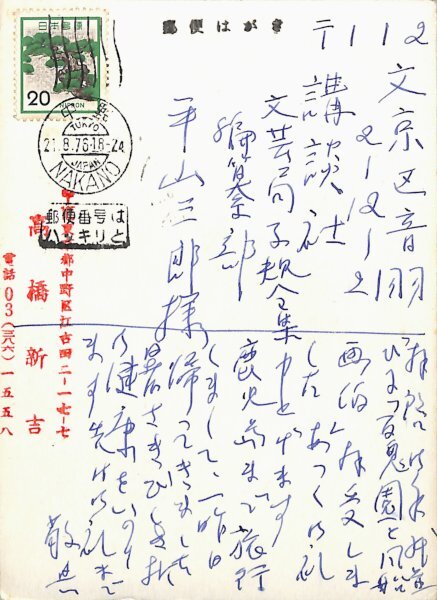 郵便はがき
日本郵便
20
NIPPON
中野
TOKYO
21.8.76.18-24
JAPAN
NAKANO
郵便番号は
ハッキリと
〒112
文京区音羽
2-12-21
講談社
文芸局子規全集
編集部
平山三郎様
百鬼園と
画伯 拝受しま
した あつく御礼
申上げます
鹿児島まで旅行
しまして、一昨日
帰ってきました
暑さきびしき折
御健康をいのり
ます 先は御礼まで
敬具
都中野区江古田二ー一七ー七
高橋新吉
電話03(三八六)一五五八